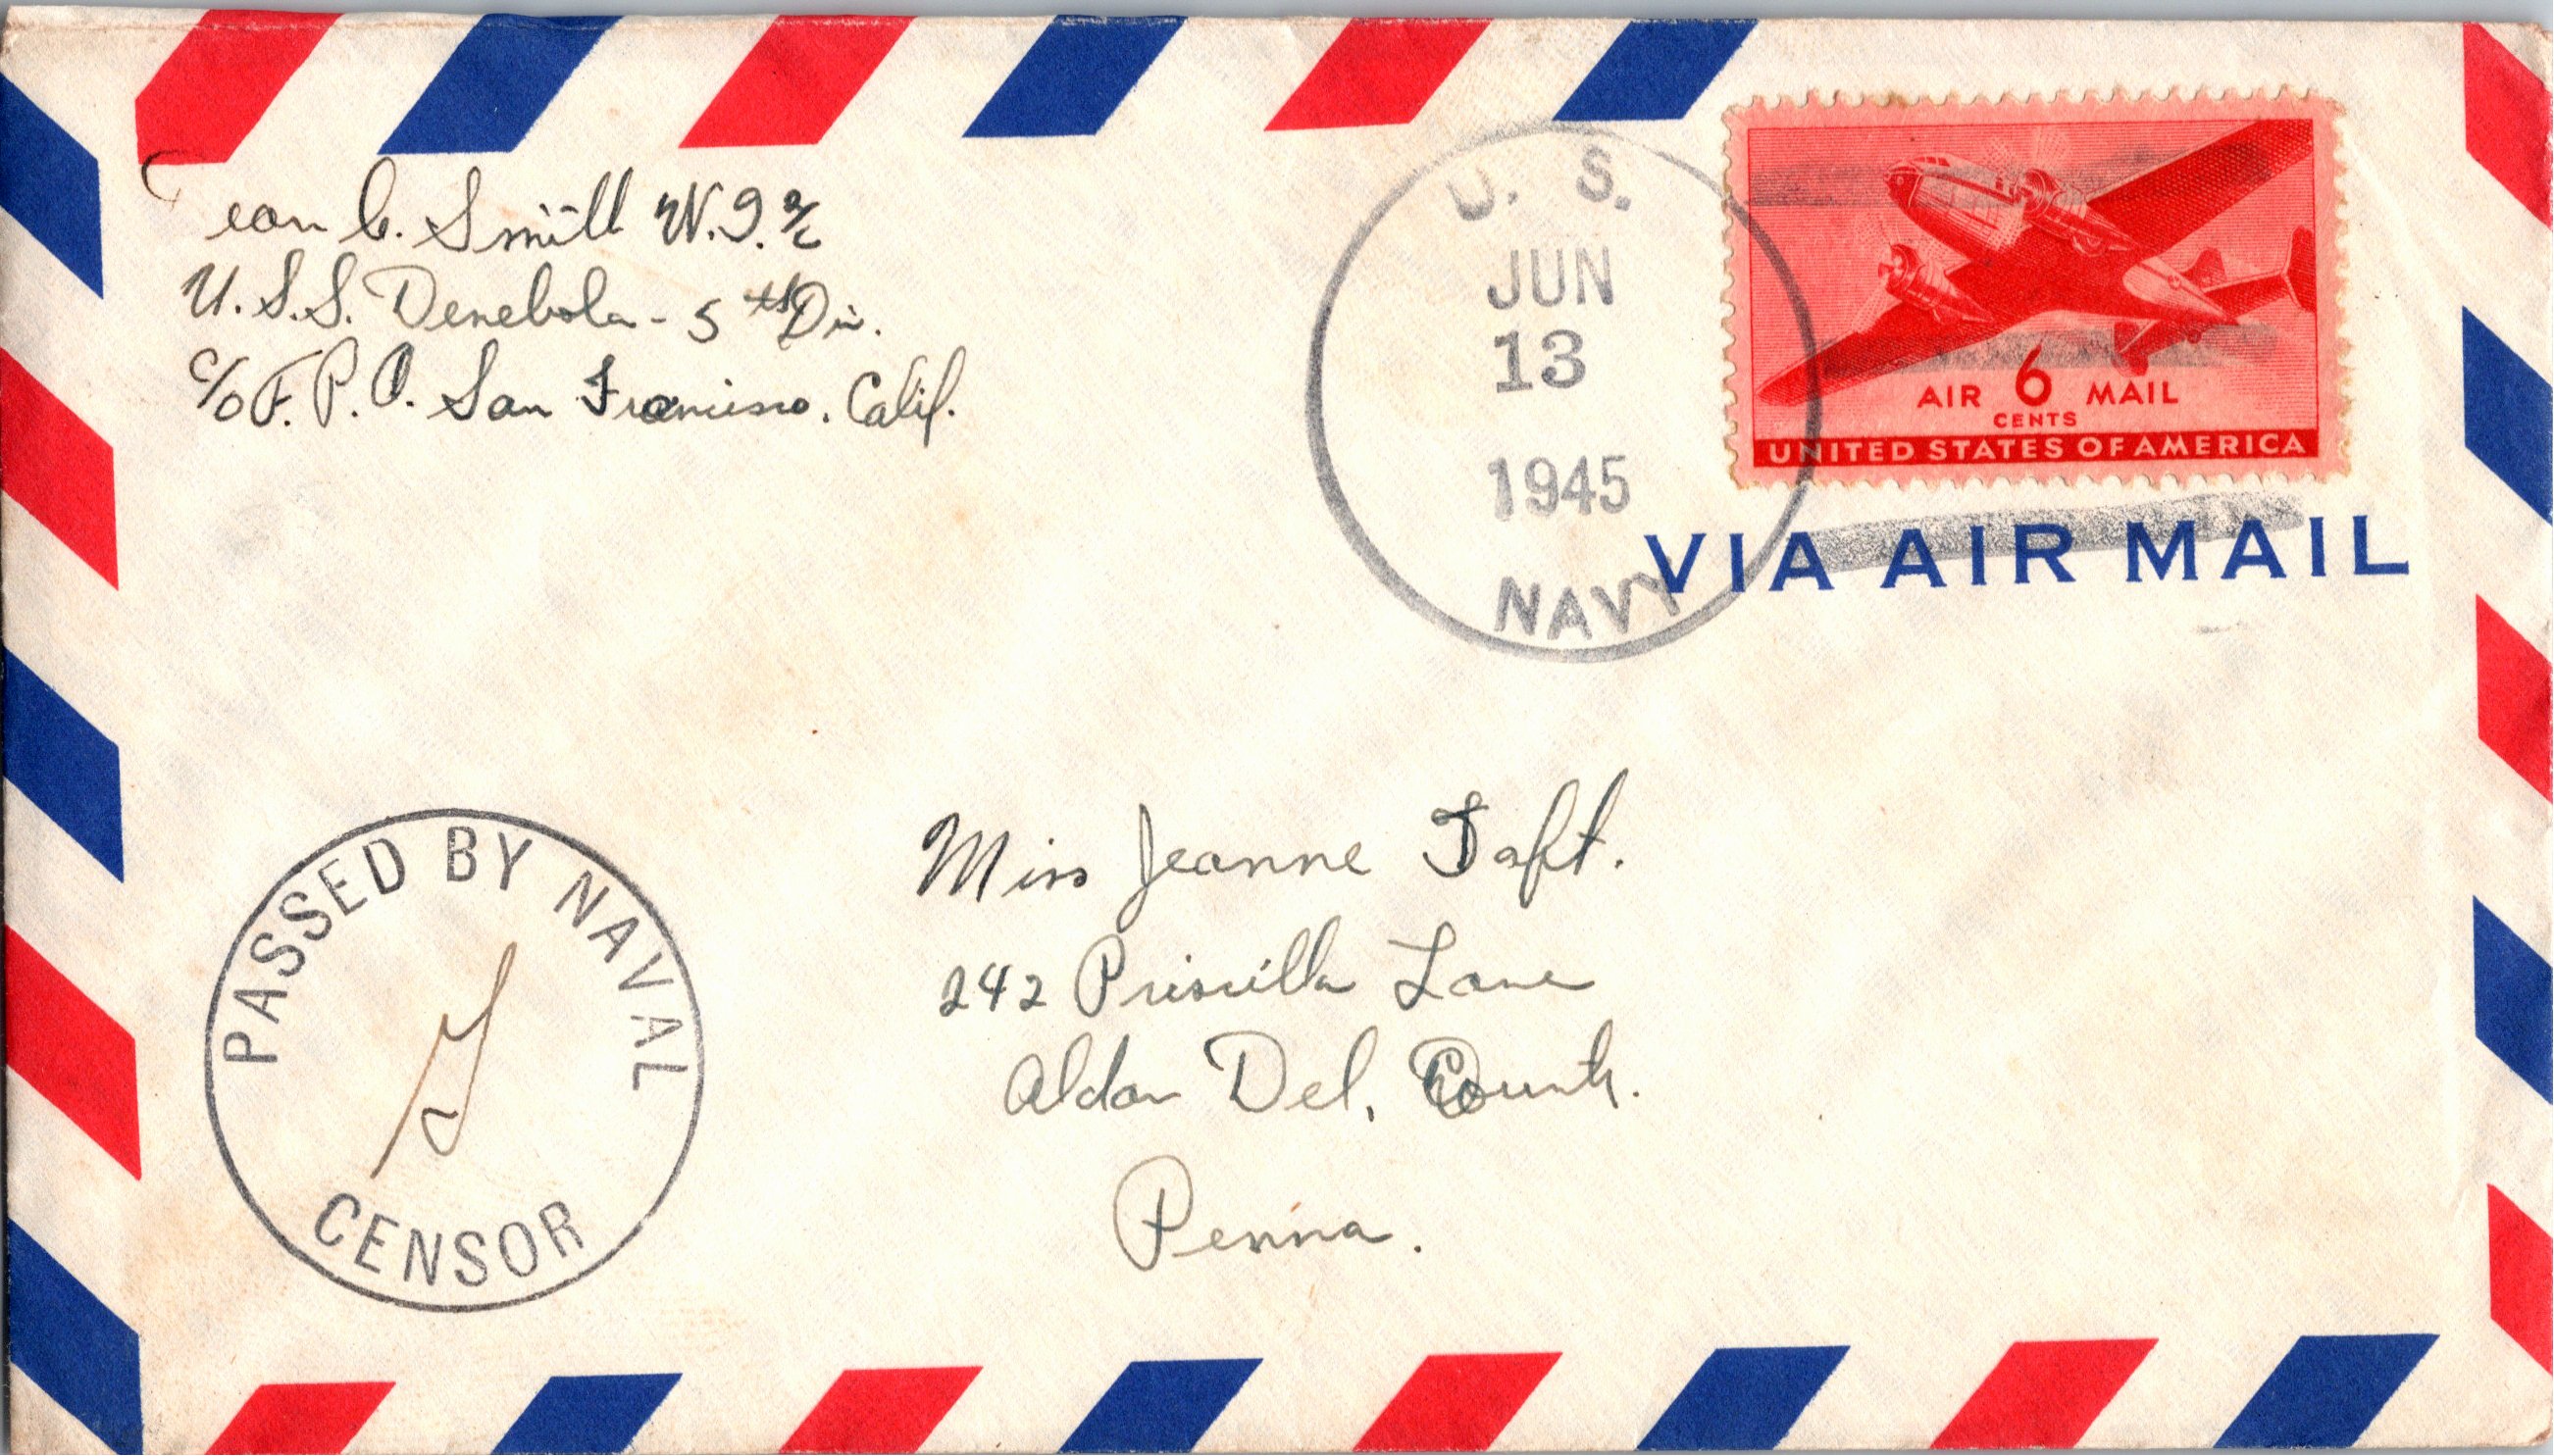 ean C. Smith W.T. 2/c
U.S.S. Denebola - 5th Div.
c/o F.P.O. San Francisco, Calif.
U. S.
JUN
13
1945
NAVY
AIR 6 MAIL
CENTS
UNITED STATES OF AMERICA
VIA AIR MAIL
PASSED BY NAVAL
CENSOR
Miss Jeanne Taft.
242 Priscilla Lane
Aldan Del. County.
Penna.